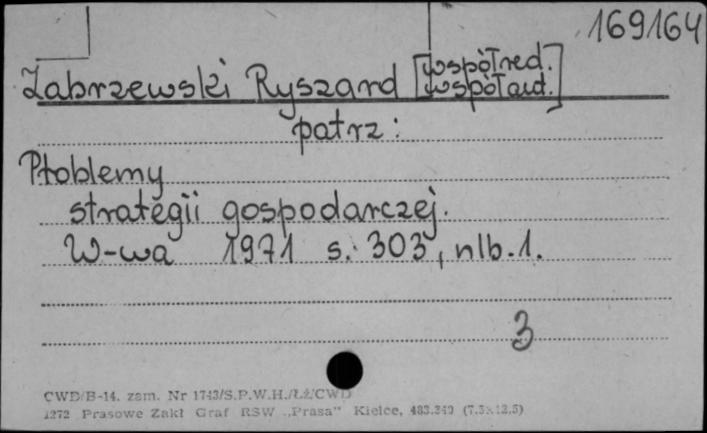 169164
Zabrzewski Ryszard [współred.
współaut.]
patrz:
Problemy
strategii gospodarczej.
W-wa 1971 s. 303, nlb. 1.
3
CWD/B-14. zam. Nr 1743/S.P.W.H./ŁŻ/CWD
1272 Prasowe Zakł Graf RSW „Prasa” Kielce, 483.340 (7.5x12.5)